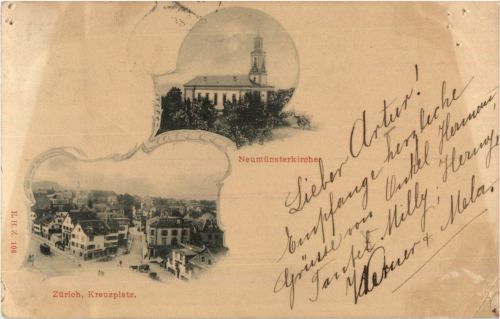 Neumünsterkirche
Lieber Artur!
Empfange herzliche
Grüsse von Onkel Hermann
Tante Milly, Herny,
Werner & Mela.
E. H. Z. 106
Zürich, Kreuzplatz.